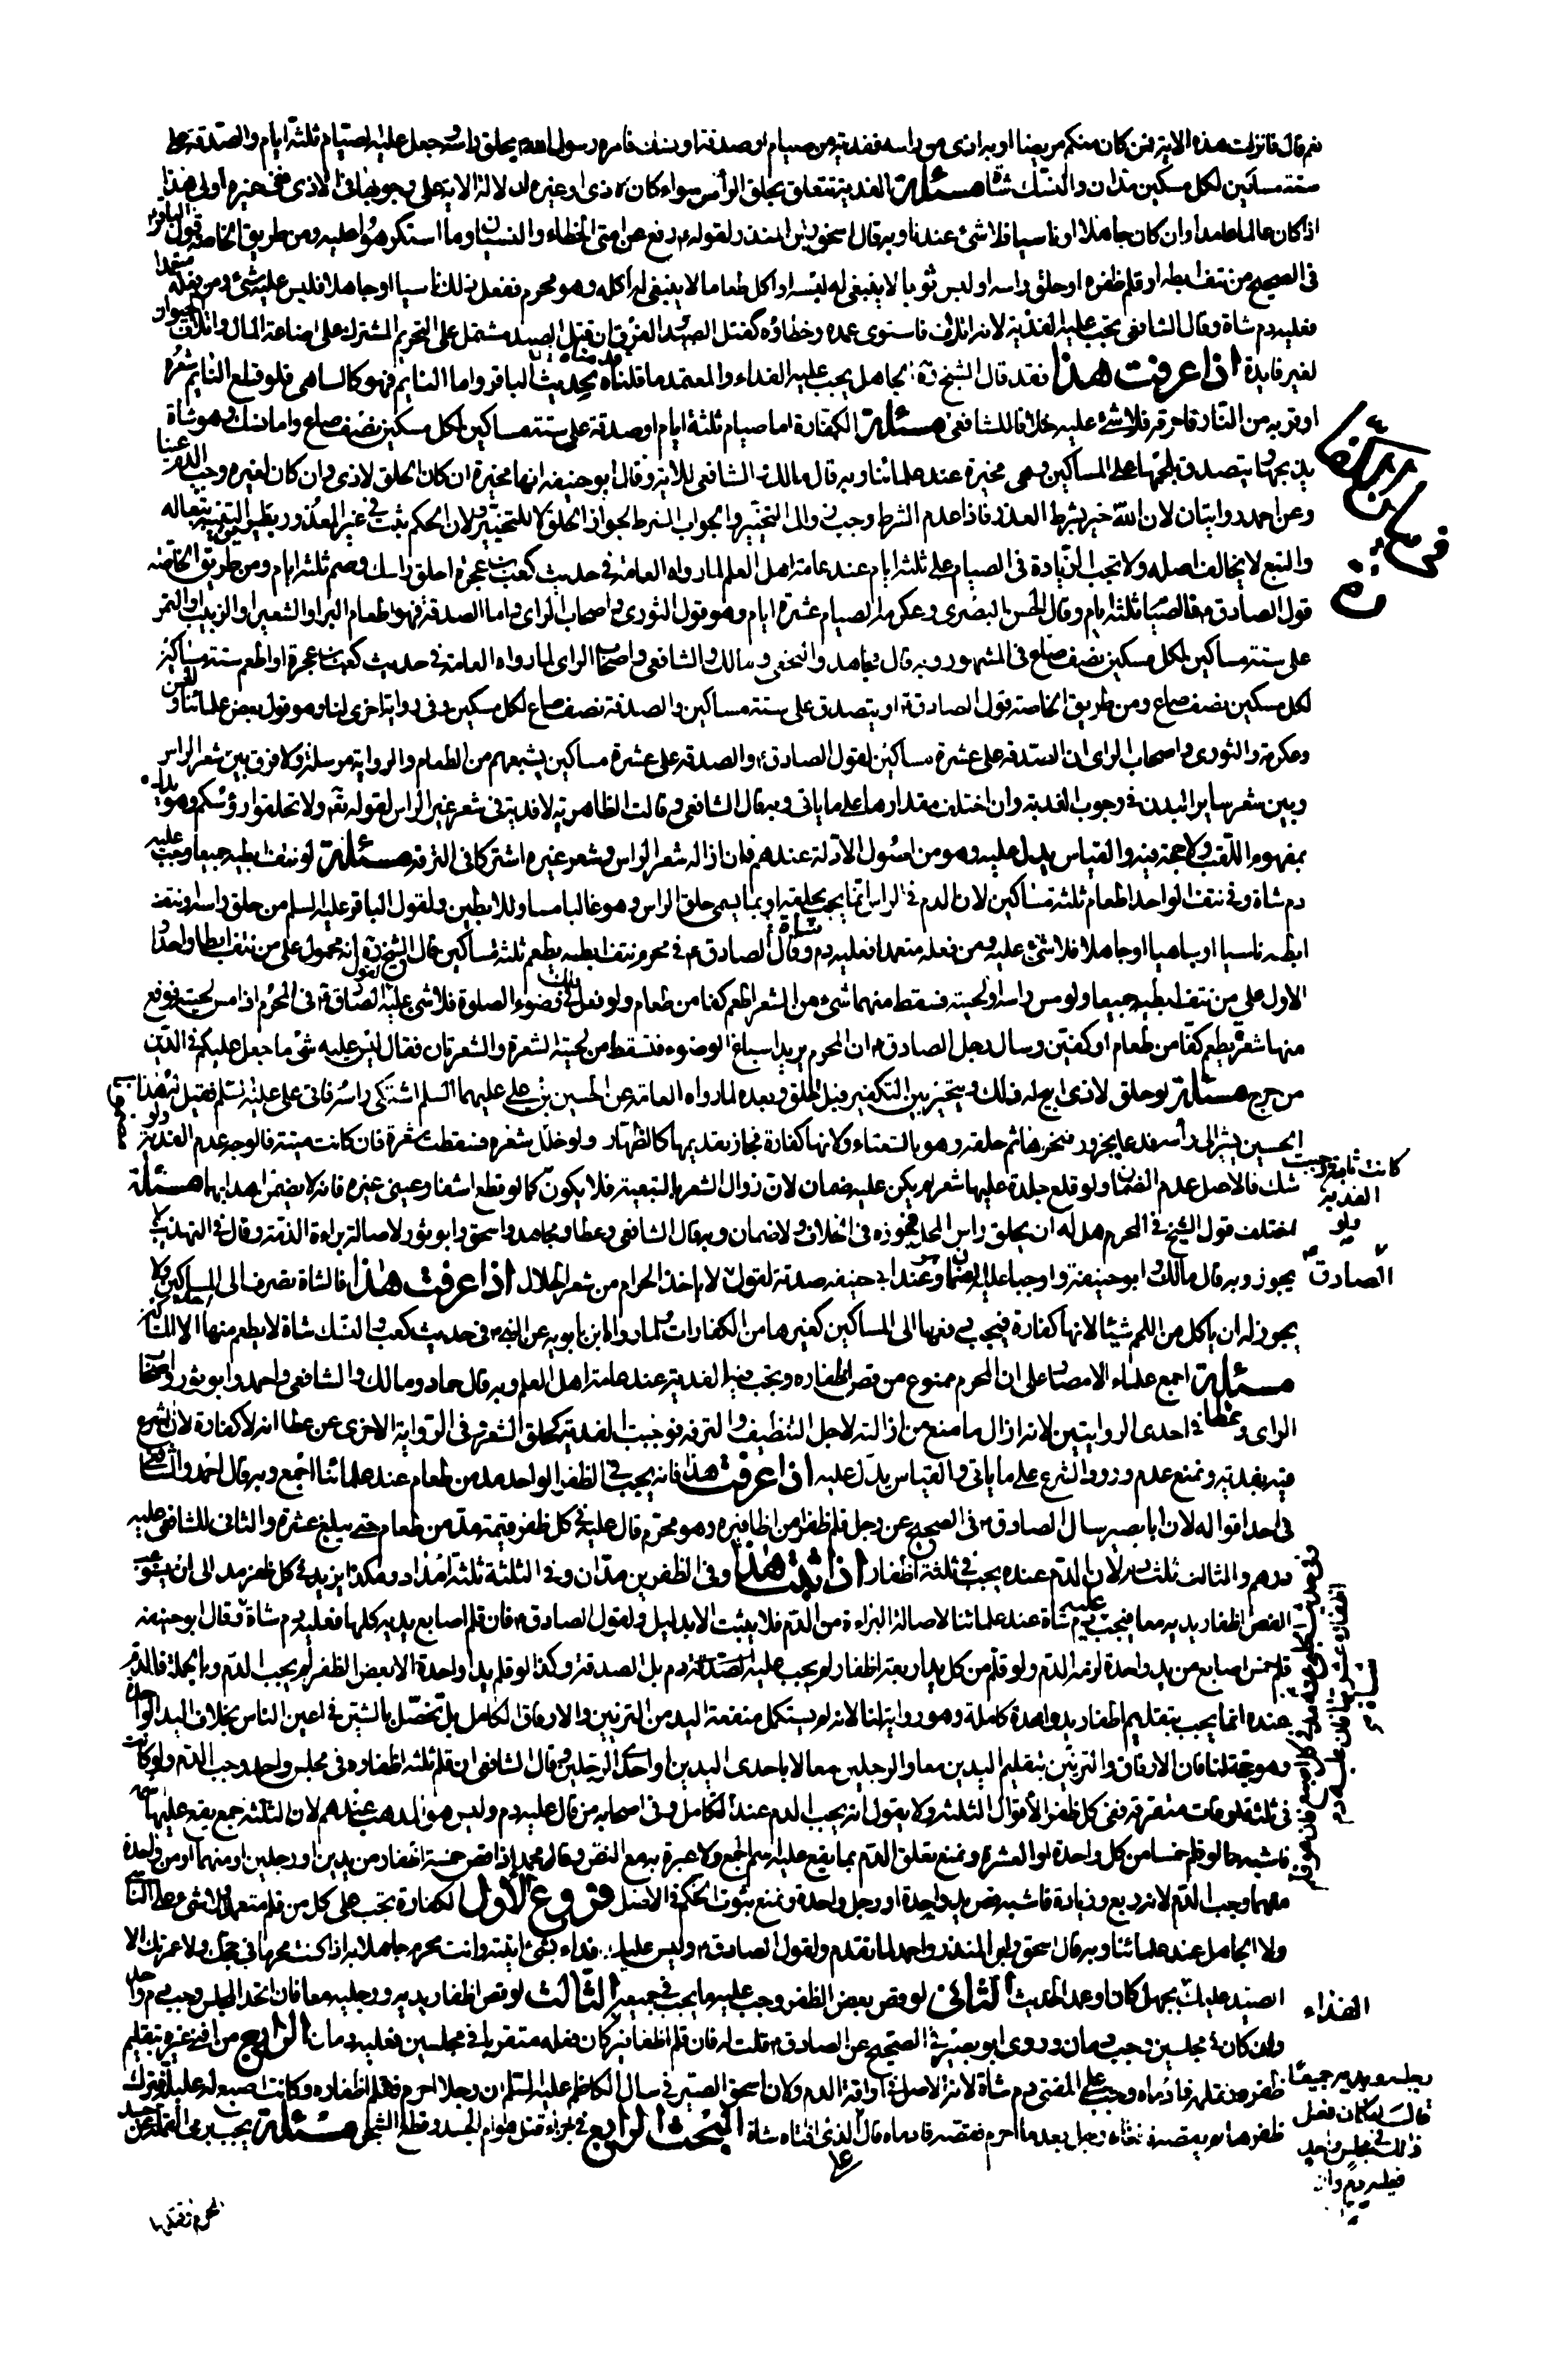 ثم قال فانزلت هذه الآية فمن كان منكم مريضا او به اذى من راسه ففدية من صيام او صدقة او نسك فامره رسول الله يحلق راسه وجعل عليه الصيام ثلثة ايام والصدقة على
ستة مساكين لكل مسكين مدان والنسك شاة مسئلة الفدية تتعلق بحلق الرأس سواء كان لاذى او غيره لدلالة الاية على وجوبها في الاذى ففي غيره اولى هذا
اذا كان عالما عامدا وان كان جاهلا او ناسيا فلا شئ عندنا وبه قال اسحق وابن المنذر لقوله رفع عن امتى الخطاء والنسيان وما استكرهوا عليه ومن طريق الخاصة قول الباقر
في الصحيح من نتف ابطه او قلم ظفره او حلق راسه او لبس ثوبا لا ينبغى له لبسه او اكل طعاما لا ينبغى له اكله وهو محرم ففعل ذلك ناسيا او جاهلا فليس عليه شئ ومن فعله متعمدا
فعليه دم شاة وقال الشافعى يجب عليه الفدية لانه اتلاف فاستوى عمده وخطاؤه كقتل الصيد والفرق ان قتل الصيد مشتمل على التحريم المشترك على اضاعة المال واتلاف الحيوان
لغير فايدة اذا عرفت هذا فقد قال الشيخ ره الجاهل يجب عليه الفداء والمعتمد ما قلناه لحديث الباقر واما النايم فهو كالساهى فلو قلع النايم شعره
او قربه من النار فاحرقه فلا شئ عليه خلافا للشافعى مسئلة الكفارة اما صيام ثلثة ايام او صدقة على ستة مساكين لكل مسكين نصف صاع واما نسك وهو شاة
يذبحها ويتصدق بلحمها على المساكين وهى مخيرة عند علمائنا وبه قال مالك والشافعى للاية وقال ابو حنيفة انها مخيرة ان كان الحلق لاذى وان كان لغيره وجب الدم عينا
وعن احمد روايتان لان الله خير بشرط العذر فاذا عدم الشرط وجب زوال التخيير والجواب الشرط لجواز الحلق لا للتخيير ولان الحكم يثبت في غير المعذور بطريق التنبيه تبعا له
والتبع لا يخالف اصله ولا تجب الزيادة في الصيام على ثلثة ايام عند عامة اهل العلم لما رواه العامة في حديث كعب بن عجرة احلق راسك وصم ثلثة ايام ومن طريق الخاصة
قول الصادق فالصيام ثلثة ايام وقال الحسن البصرى وعكرمة الصيام عشرة ايام وهو قول الثورى واصحاب الراى واما الصدقة فهو اطعام البر او الشعير او الزبيب او التمر
على ستة مساكين لكل مسكين نصف صاع في المشهور وبه قال مجاهد والنخعى ومالك والشافعى واصحاب الراى لما رواه العامة في حديث كعب بن عجرة او اطعم ستة مساكين
لكل مسكين نصف صاع ومن طريق الخاصة قول الصادق او يتصدق على ستة مساكين والصدقة نصف صاع لكل مسكين وفى رواية اخرى لنا وهو قول بعض علمائنا والحسن
وعكرمة والثورى واصحاب الراى ان الصدقة على عشرة مساكين لقول الصادق والصدقة على عشرة مساكين يشبعهم من الطعام والرواية مرسلة ولا فرق بين شعر الراس
وبين شعر ساير البدن في وجوب الفدية وان اختلف مقدارها على ما ياتى وبه قال الشافعى وقالت الظاهرية لا فدية في شعر غير الراس لقوله تعم ولا تحلقوا رؤسكم وهو يدل
بمفهوم اللقب ولا حجة فيه والقياس يدل عليه وهو من اصول الادلة عندهم فان ازالة شعر الراس وشعر غيره اشتركا في الترفه مسئلة لو نتف ابطيه جميعا وجب عليه
دم شاة وفى نتف الواحد اطعام ثلثة مساكين لان الدم في الراس انما يجب بحلقه او بما يسمى حلق الراس وهو غالبا مساو للابطين ولقول الباقر عليه السلم من حلق راسه او نتف
ابطه ناسيا او ساهيا او جاهلا فلا شئ عليه ومن فعله متعمدا فعليه دم شاة وقال الصادق في محرم نتف ابطه يطعم ثلثة مساكين قال الشيخ ره انه محمول على من نتف ابطا واحدا و
الاول على من نتف ابطيه جميعا ولو مس راسه او لحيته فسقط منهما شئ من الشعر اطعم كفا من طعام ولو فعل ذلك في وضوء الصلوة فلا شئ عليه لقول الصادق في المحرم اذا مس لحيته فوقع
منها شعرة يطعم كفا من طعام او كفين وسال رجل الصادق ان المحرم يريد اسباغ الوضوء فتسقط من لحيته الشعرة والشعرتان فقال ليس عليه شئ ما جعل عليكم في الدين
من حرج مسئلة لو حلق لاذى ابيح له ذلك ويتخير بين التكفير قبل الحلق وبعده لما رواه العامة عن الحسين بن على عليهما السلم اشتكى راسه فاتى على عليه السلم فقيل له هذا
الحسين يشير الى رأسه فدعا بجزور فنحرها ثم حلقه وهو بالسقياء ولانها كفارة فجاز تقديمها كالظهار ولو خلل شعره فسقطت شعرة فان كانت ميتة فالوجه عدم الفدية ولو
كانت ثابتة وجبت الفدية ولو
شك فالاصل عدم الضمان ولو قلع جلدة عليها شعر لم يكن عليه ضمان لان زوال الشعر بالتبعية فلا يكون كما لو قطع اشفار عينى غيره فانه لا يضمن اهدابها مسئلة
اختلف قول الشيخ في المحرم هل له ان يحلق راس المحل فجوزه في الخلاف ولا ضمان وبه قال الشافعى وعطا ومجاهد واسحق وابو ثور ولاصالة براءة الذمة وقال في التهذيب لا
يجوز وبه قال مالك وابو حنيفة واوجبا عليه الضمان وهو عند ابى حنيفة صدقة لقول الصادق لا ياخذ الحرام من شعر الحلال اذا عرفت هذا فالشاة تصرف الى المساكين ولا
يجوز له ان ياكل من اللحم شيئا لانها كفارة فيجب دفعها الى المساكين كغيرها من الكفارات ولما رواه ابن بابويه عن النبى في حديث كعب والنسك شاة لا يطعم منها الا المساكين
مسئلة اجمع علماء الامصار على ان المحرم ممنوع من قص اظفاره وتجب فيه الفدية عند عامة اهل العلم وبه قال حماد ومالك والشافعى واحمد وابو ثور واصحاب
الراى وعطا في احدى الروايتين لانه ازال ما منع من ازالته لاجل التنظيف والترفه فوجبت الفدية كحلق الشعر وفى الرواية الاخرى عن عطا انه لا كفارة لان الشرع لم
فيه بفدية ونمنع عدم ورود الشرع على ما ياتى والقياس يدل عليه اذا عرفت هذا فانه يجب في الظفر الواحد مد من طعام عند علمائنا اجمع وبه قال احمد والشافعى
في احد اقواله لان ابا بصير سال الصادق في الصحيح عن رجل قلم ظفرا من اظافيره وهو محرم قال عليه في كل ظفر قيمة مد من طعام حتى يبلغ عشرة والثانى للشافعى عليه
درهم والثالث ثلث دم لان الدم عنده يجب في ثلثة اظفار اذا ثبت هذا وفى الظفرين مدان وفى الثلثة ثلثة امداد وهكذا يزيد في كل ظفر مد الى ان يستوعب
القص اظفار يديه معا فيجب عليه دم شاة عند علمائنا لاصالة البراءة من الدم فلا يثبت الا بدليل ولقول الصادق فان قلم اصابع يديه كلها فعليه دم شاة وقال ابو حنيفة
قلم خمس اصابع من يد واحدة لزمه الدم ولو قلم من كل يد اربعة اظفار لم يجب عليه دم بل الصدقة وكذا لو قلم يدا واحدة الا بعض الظفر لم يجب الدم وبالجملة فالدم
عنده انما يجب بتقليم اظفار يد واحدة كاملة وهو رواية لنا لانه لم يستكمل منفعة اليد من التزيين والارفاق الكامل بل تحصل بالشين في اعين الناس بخلاف اليد الواحدة
وهو حجة لنا فان الارفاق والتزيين بتقليم اليدين معا والرجلين معا لا باحدى اليدين او احدى الرجلين وقال الشافعى ان قلم ثلثة اظفاره في مجلس واحد وجب الدم ولو كانت
في ثلثة اوقات متفرقة ففى كل ظفر الاقوال الثلثة ولا يقول انه يجب الدم عند التكامل وفى اصحابه من قال عليه دم وليس هو المذهب عندهم لان الثلثة جمع يقع عليها اسمه
فاشبه ما لو قلم خمسا من كل واحدة او العشرة ونمنع تعلق الدم بما يقع عليه اسم الجمع ولا عبرة به مع النص وقال محمد اذا قص خمسة اظفار من يدين او رجلين او منهما او من واحدة
منهما وجب الدم لانه ربع وزيادة فاشبه قص يد واحدة او رجل واحدة ونمنع ثبوت الحكم في الاصل فروع الاول الكفارة تجب على كل من قلم متعمدا ولا شئ على الناسى
ولا الجاهل عند علمائنا وبه قال اسحق وابن المنذر واحمد لما تقدم ولقول الصادق وليس عليك فداء شئ اتيته وانت محرم جاهلا به اذا كنت محرما في حجك ولا عمرتك الا
الصيد عليك الفداء بجهل كان او عمد الحديث الثانى لو قص بعض الظفر وجب عليه ما يجب في جميعه الثالث لو قص اظفار يديه ورجليه معا فان اتحد المجلس وجب دم واحد
وان كان في مجلسين وجب دمان وروى ابو بصير في الصحيح عن الصادق قلت له فان قلم اظافير رجليه ويديه جميعا قال ان كان فعل ذلك في مجلس واحد فعليه دم وان كان فعله متفرقا في مجلسين فعليه دمان الرابع من افتى غيره بتقليم
ظفره فقلمه فادماه وجب على المفتى دم شاة لانه الاصل في اراقة الدم وكان اسحق الصيرفى سال الكاظم عليه السلم ان رجلا احرم فقلم اظفاره وكانت اصبع له عليلة فترك
ظفرها لم يقصه فافتاه رجل بعد ما احرم فقصه فادماه قال على الذى افتاه شاة البحث الرابع في جزاء قتل هوام الجسد وقطع الشجر مسئلة يجب برمى القملة عن جسد
المحرم او قتلها